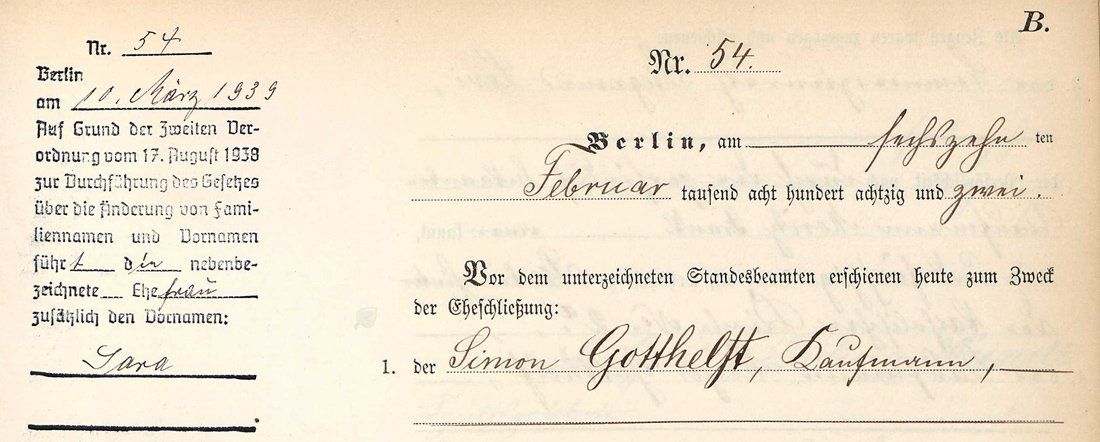 B.
Nr. 54
Berlin
am 10. März 1939
Auf Grund der Zweiten Ver-
ordnung vom 17. August 1938
zur Durchführung des Gesetzes
über die Änderung von Fami-
liennamen und Vornamen
führt die nebenbe-
zeichnete Ehefrau
zusätzlich den Vornamen:
Sara
Nr. 54.
Berlin, am sechszehn ten
Februar tausend acht hundert achtzig und zwei.
Vor dem unterzeichneten Standesbeamten erschienen heute zum Zweck
der Eheschließung:
1. der Simon Gotthelft, Kaufmann,